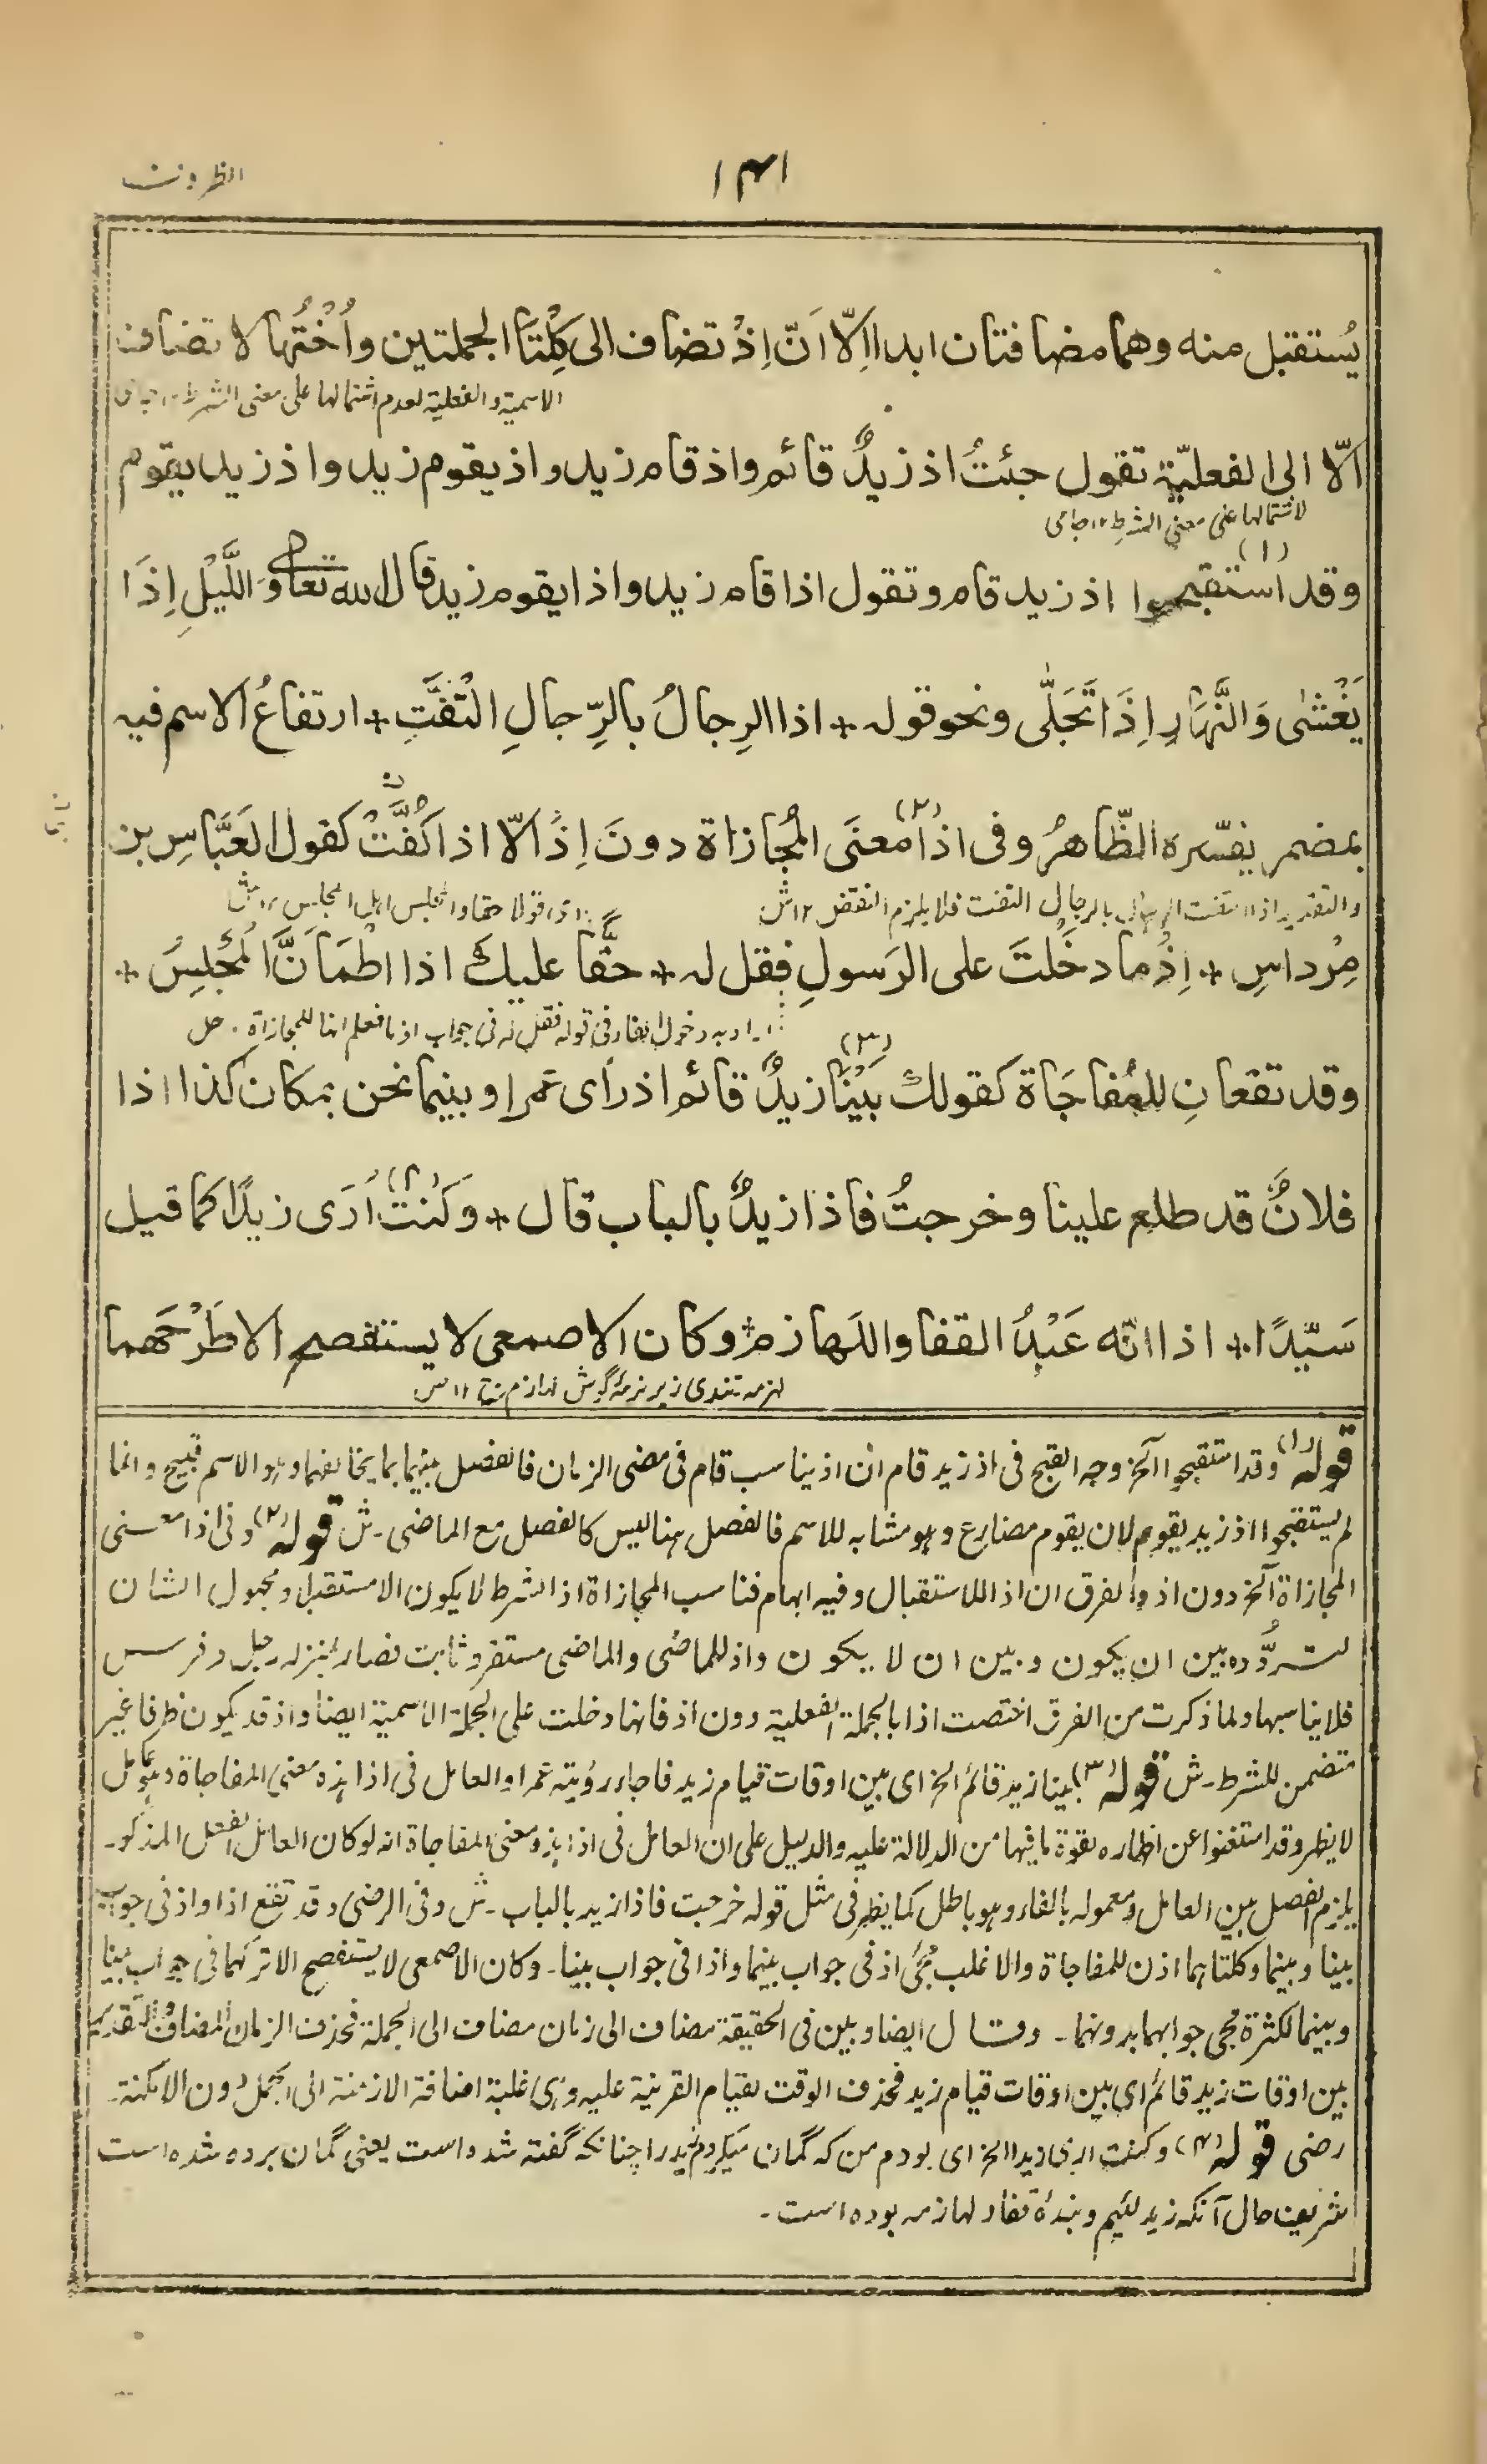 ١٤١
الظروف
يُستقبل منه وهما مضافتان ابدا اِلّا اَنّ اِذْ تضاف الى كِلْتَا الجملتين واُخْتُها لا تضاف
الاسمية والفعلية لعدم اشتمالها على معنى الشرط ١٢ جامى
الّا الى الفعليّة تقول جئتُ اذ زيدٌ قائم واذ قام زيد واذ يقوم زيد واذ زيد يقوم
لاشتمالها على معنى الشرط ١٢ جامى
وقد استقبحوا (١) اذ زيد قام وتقول اذا قام زيد واذا يقوم زيد قال الله تعالى وَاللَّيْلِ اِذَا
يَغْشٰى وَالنَّهَارِ اِذَا تَجَلّٰى ونحو قوله + اذا الرِجالُ بالرِّجالِ الْتَفَّتِ + ارتفاعُ الاسم فيه
بمضمر يفسّره الظّاهرُ وفى اذا (٢) معنَى المُجازاة دونَ اِذْ الّا اذا كُفَّتْ كقول العَبَّاسِ بن
والتقدير اذا التفت الرجال بالرجال التفت فلا يلزم النقض ١٢ ش
اى قولا حقا واذا جلس اهل المجلس ١٢ ش
مِرْداسِ + اِذْما دخَلتَ على الرَسولِ فقل له + حقًّا عليك اذا اطْمَاَنَّ المَجْلِسُ +
دخول الفاء فى قوله فقل له فى جواب اذما فعلم انها للمجازاة . حل
وقد تقعانِ للمُفاجَاة كقولك بَيْنَا (٣) زيدٌ قائم اذ راى عمرا وبينما نحن بمكان كذا اذا
فلانٌ قد طلع علينا وخرجتُ فاذا زيدٌ بالباب قال + وكُنْتُ (٤) اُرَى زيدًا كما قيل
سَيّدًا + اذا انّه عَبْدُ القفا واللَهازمِ + وكان الاصمعى لا يستفصح الا طَرْحَهما
قوله (١) وقد استقبحوا آلخ وجه القبح فى اذ زيد قام ان اذ يناسب قام فى مضى الزمان فالفصل بينهما بما يخالفهما وهو الاسم قبيح وانما
لم يستقبحوا اذ زيد يقوم لان يقوم مضارع وهو مشابه للاسم فالفصل هنا ليس كالفصل مع الماضى ـ ش قوله (٢) وفى اذا معنى
المجازاة آلخ دون اذ والفرق ان اذا للاستقبال وفيه ابهام فناسب المجازاة اذ الشرط لا يكون الا مستقبلا ومجهول الشان
لتردُّده بين ان يكون وبين ان لا يكون واذ للماضى والماضى مستقر وثابت فصار بمنزلة رجل وفرس
فلا يناسبها ولما ذكرت من الفرق اختصت اذا بالجملة الفعلية دون اذ فانها دخلت على الجملة الاسمية ايضا واذ قد يكون ظرفا غير
متضمن للشرط ـ ش قوله (٣) بينا زيد قائم الخ اى بين اوقات قيام زيد فاجاء رؤيته عمرا والعامل فى اذا هذه معنى المفاجاة وهو عامل
لا يظهر وقد استغنوا عن اظهاره بقوة ما فيها من الدلالة عليه والدليل على ان العامل فى اذا هذه معنى المفاجاة انه لو كان العامل الفعل المذكور ـ
يلزم الفصل بين العامل ومعموله بالفاء وهو باطل كما يظهر فى مثل قوله خرجت فاذا زيد بالباب ـ ش وفى الرضى وقد تقع اذا واذ فى جواب
بينا وبينما وكلتاهما اذن للمفاجاة والاغلب مجئ اذ فى جواب بينما واذا فى جواب بينا ـ وكان الاصمعى لا يستفصح الا تركهما فى جواب بينا
وبينما لكثرة مجئ جوابهما بدونهما ـ وقال ايضا وبين فى الحقيقة مضاف الى زمان مضاف الى الجملة فحذف الزمان المضاف والتقدير
بين اوقات زيد قائم اى بين اوقات قيام زيد فحذف الوقت لقيام القرينة عليه وهى غلبة اضافة الازمنة الى الجمل دون الامكنة ـ
رضى قوله (٤) وكنت ارى زيدا الخ اى بودم من كه گمان ميكردم زيد را چنانكه گفته شده است يعنى گمان برده شده است
شريف حال آنكه زيد لئيم وبندۀ قفا ولهازمه بوده است ـ